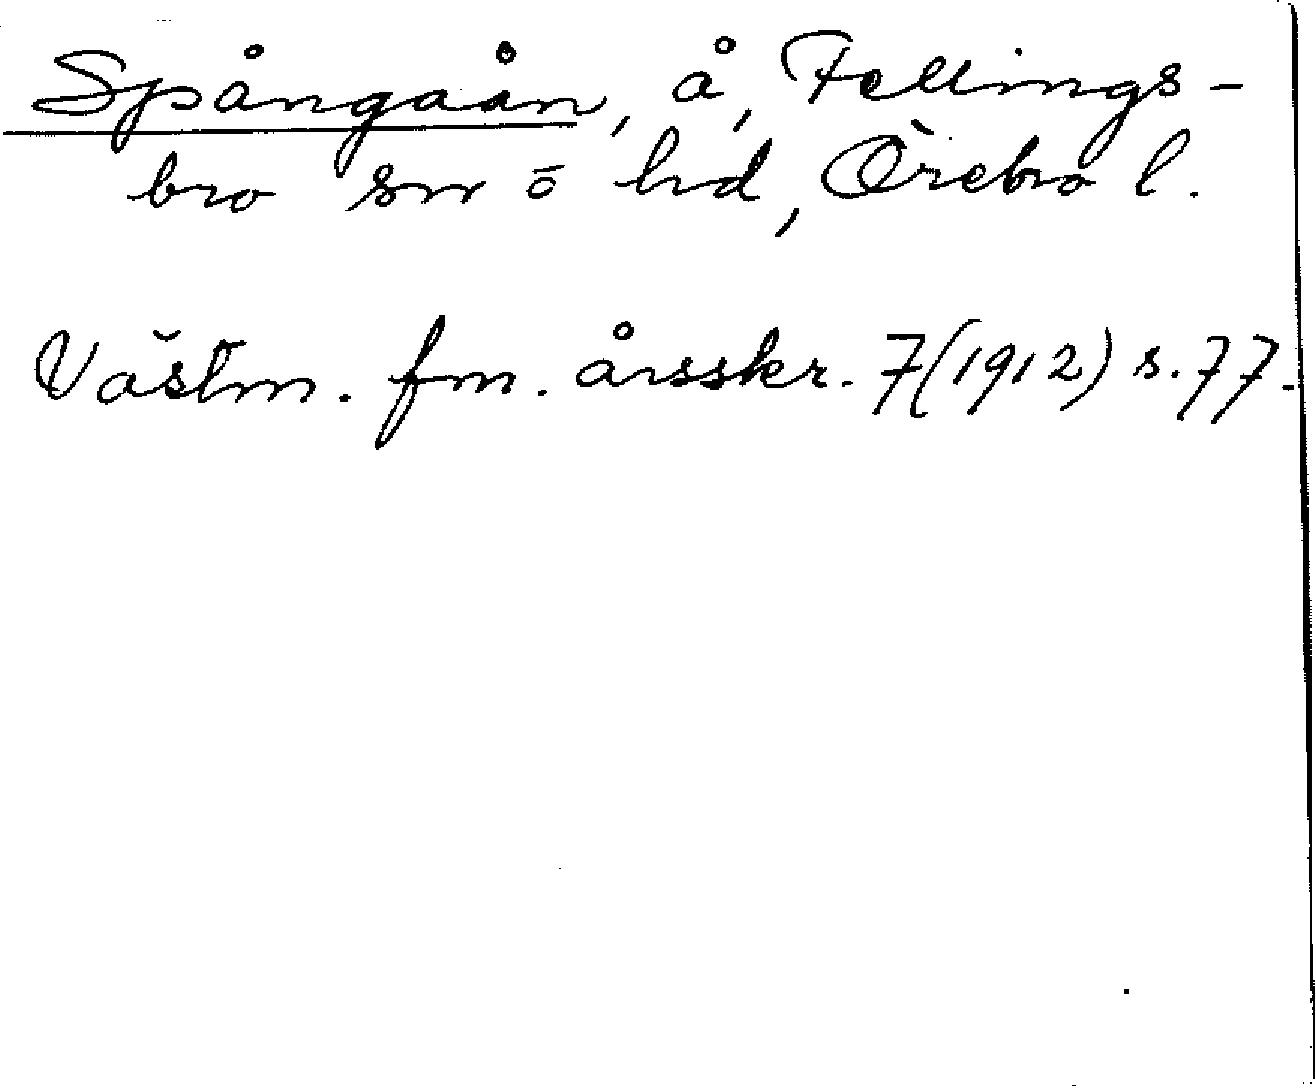 Spångaån, å, Fellings-
bro sn o hd, Örebro l.
Västm. fm. årsskr. 7(1912) s. 77.